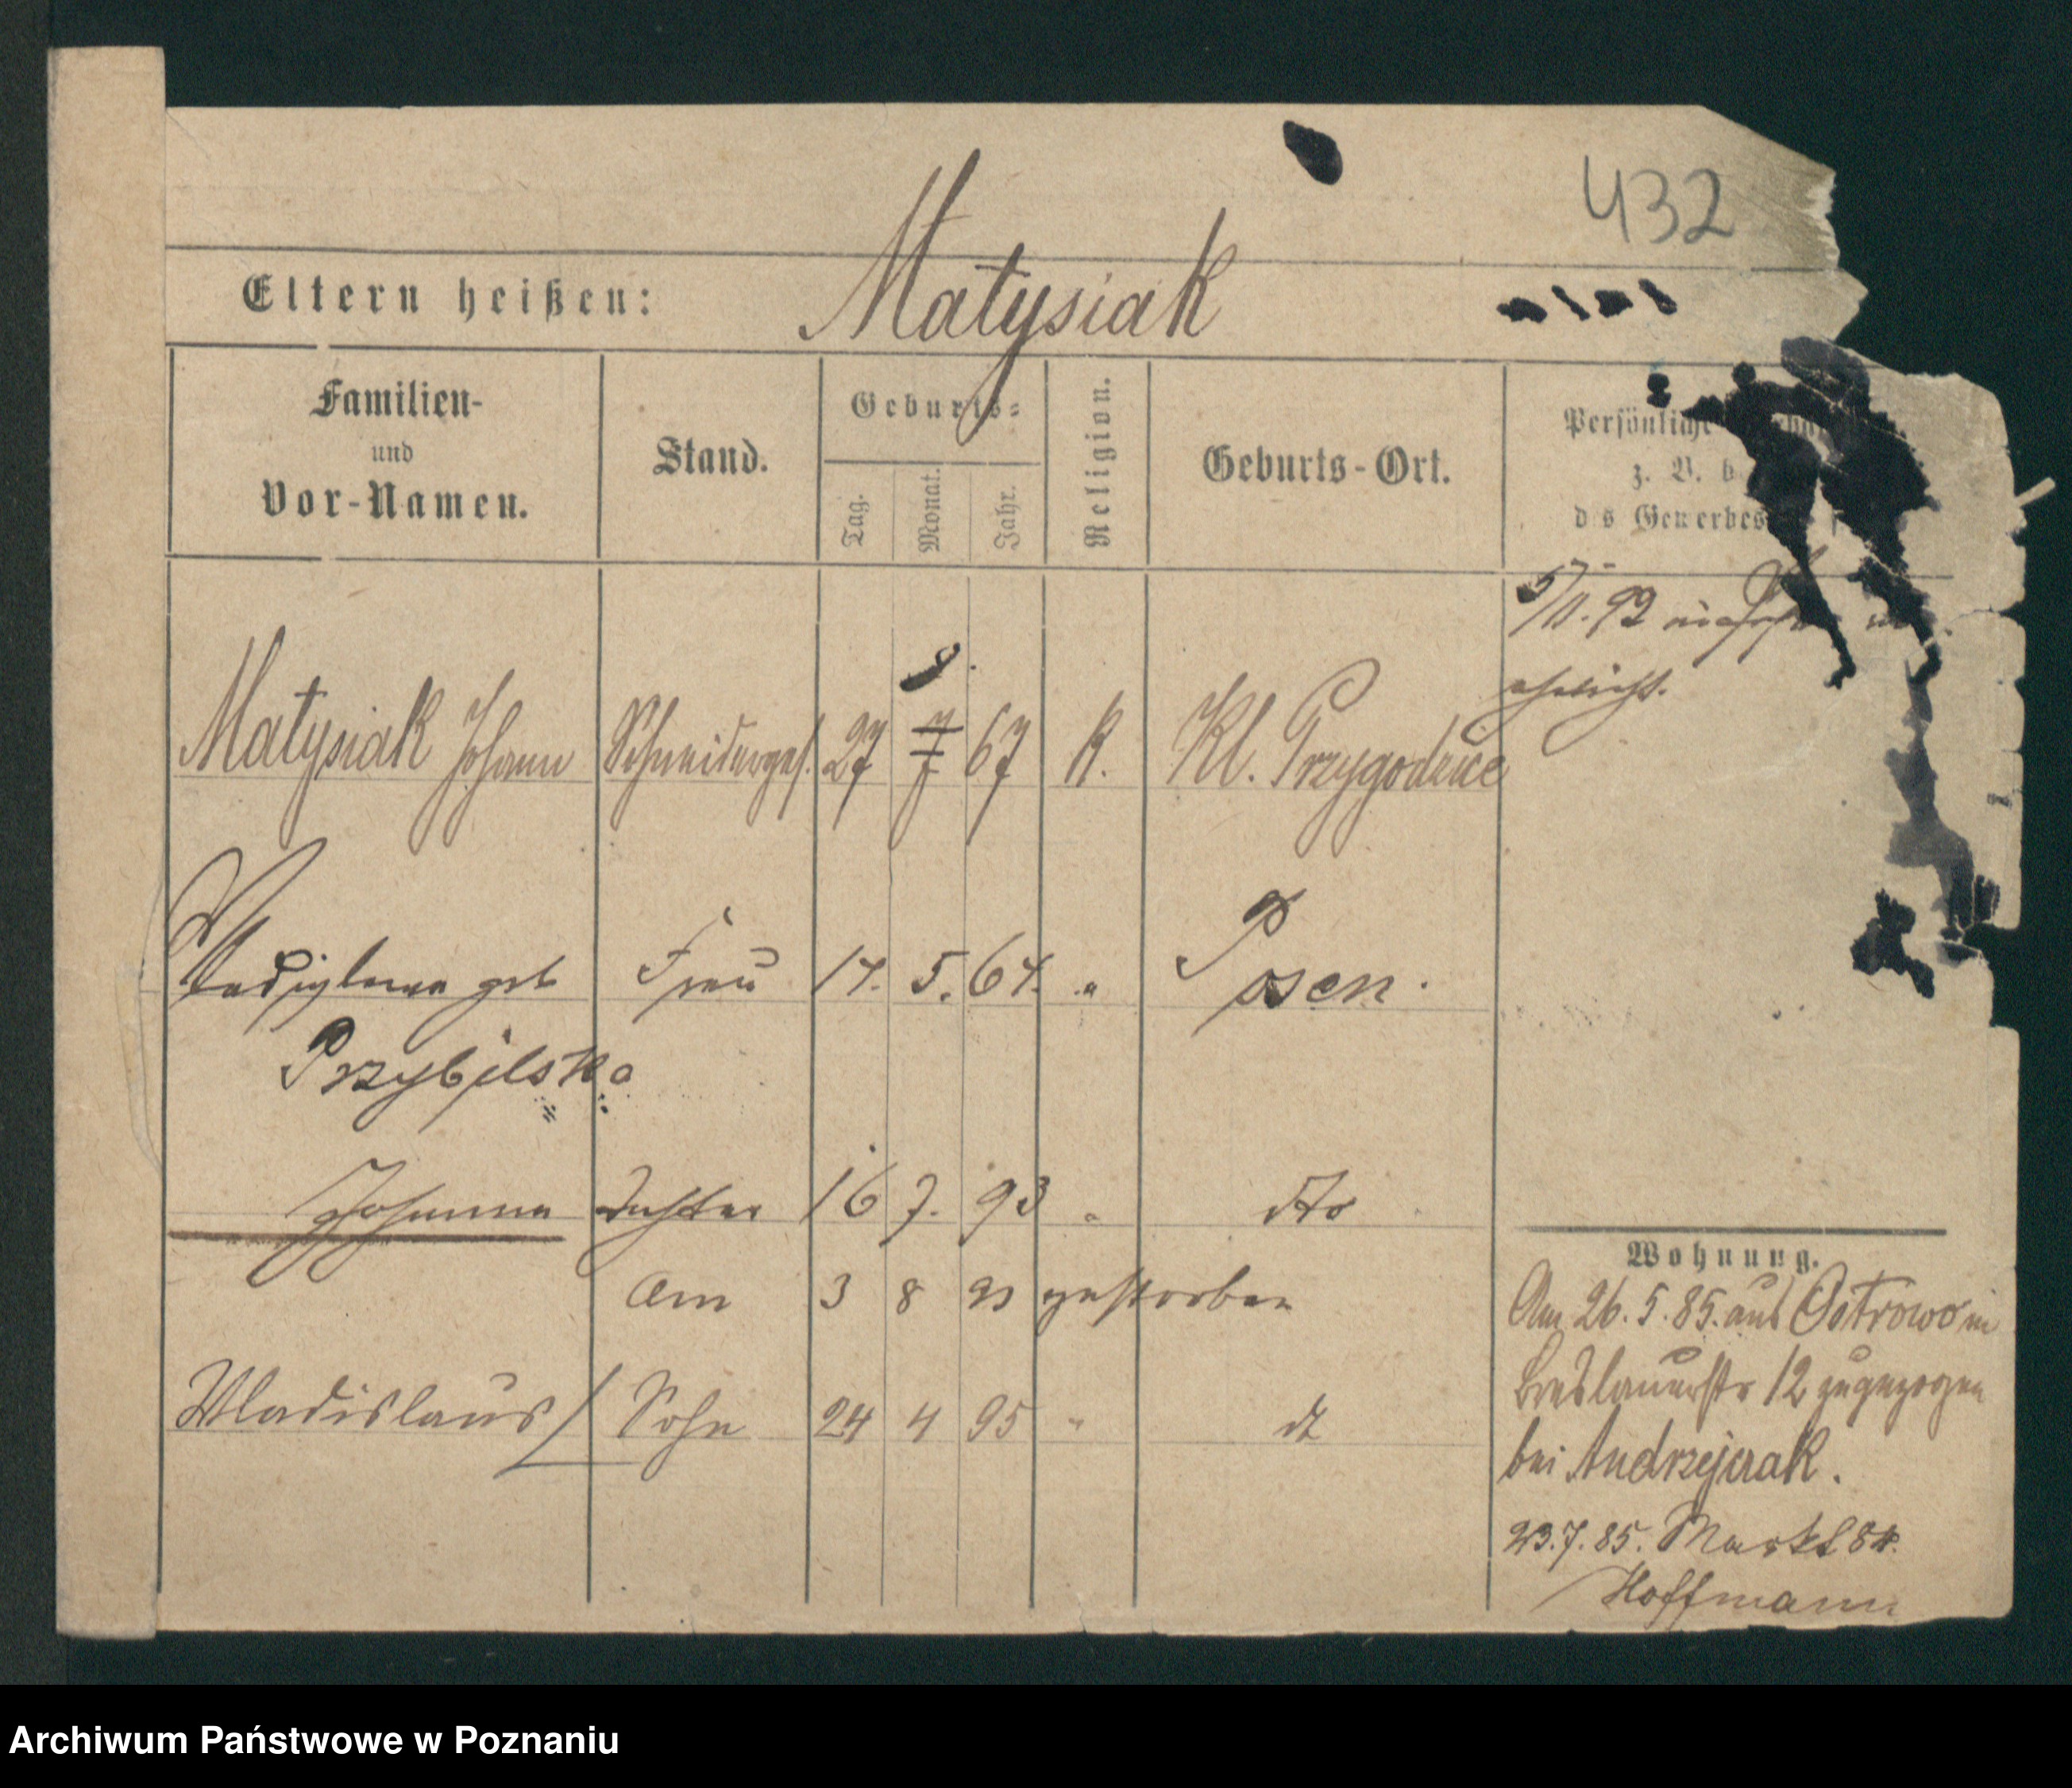 432
Eltern heißen: Matysiak
Familien-
und
Vor-Namen.
Stand.
Geburts-
Tag.
Monat.
Jahr.
Religion.
Geburts-Ort.
Persönliche
z. B. b
d s Gewerbes
5/11. 92
ehelicht.
9.
Matysiak Johann Schneiderges. 27 7 67 K. Kl. Przygodzice
geb Frau 14. 5. 64. " Posen.
Przybilska
Johanna Tochter 16 7. 93 " dto
Am 3 8 93 gestorben
Wladislaus Sohn 24 4 95 " dt
Wohnung.
Am 26. 5. 85. aus Ostrowo in
Breslauerstr 12 zugezogen
bei Andrzejczak.
23. 7. 85. Markt 84.
Hoffmann
Archiwum Państwowe w Poznaniu